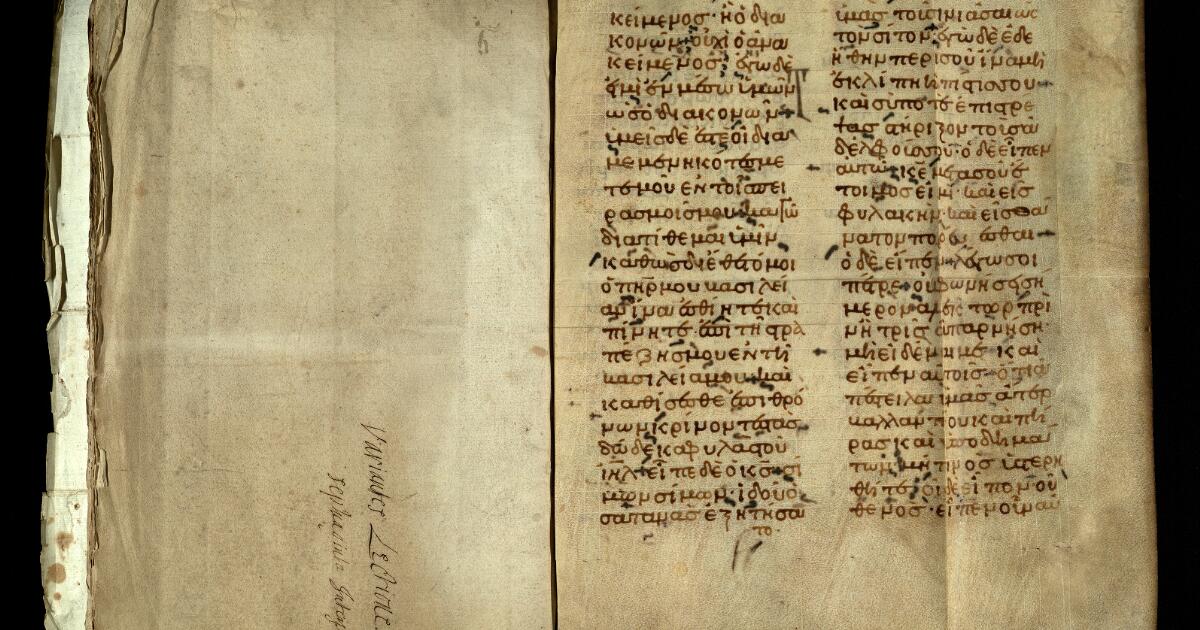 Variantes Lectione
κείμενος· ἢ ὁ δια
κονῶν· οὐχὶ ὁ ἀνα
κείμενος· ἐγὼ δὲ
εἰμὶ ἐν μέσω ὑμῶν
ὡς ὁ διακονῶν·
ὑμεῖς δὲ ἐστὲ οἱ δια
μεμενηκότες με
τ' ἐμοῦ ἐν τοῖς πει
ρασμοῖς μου· καγὼ
διατίθεμαι ὑμῖν
καθὼς διέθετό μοι
ὁ πηρ μου βασιλεί
αν ἵνα ἐσθίητε καὶ
πίνητε ἐπὶ τῆς τρα
πέζης μου ἐν τῆ
βασιλεία μου· καὶ
καθίσεσθε ἐπὶ θρό
νων κρίνοντες τὰς
δώδεκα φυλὰς τοῦ
ιηλ· εἶπε δὲ ὁ κς· σί
μων σίμων· ἰδοὺ ὁ
σατανᾶς ἐξητήσα
το
ὑμᾶς τοῦ σινιάσαι ὡς
τὸν σῖτον· ἐγὼ δὲ ἐδε
ήθην περὶ σοῦ ἵνα μὴ
ἐκλίπη ἡ πίστις σου·
καὶ σύ ποτε ἐπιστρέ
ψας στήριξον τοὺς ἀ
δελφούς σου· ὁ δὲ εἶπεν
αὐτῶ· κε μετὰ σοῦ ἕ
τοιμός εἰμι· καὶ εἰς
φυλακὴν· καὶ εἰς θά
νατον πορεύεσθαι·
ὁ δὲ εἶπεν· λέγω σοι
πέτρε· οὐ φωνήσει σή
μερον ἀλέκτωρ πρὶ
ν ἢ τρὶς ἀπαρνήση
μὴ εἰδέναι με· καὶ
εἶπεν αὐτοῖς· ὅτε ἀ
πέστειλα ὑμᾶς ἄτερ
βαλλαντίου καὶ πή
ρας καὶ ὑποδημά
των· μή τινος ὑστερή
θητε· οἱ δὲ εἶπον· οὐ
θενός· εἶπεν οὖν αὐ